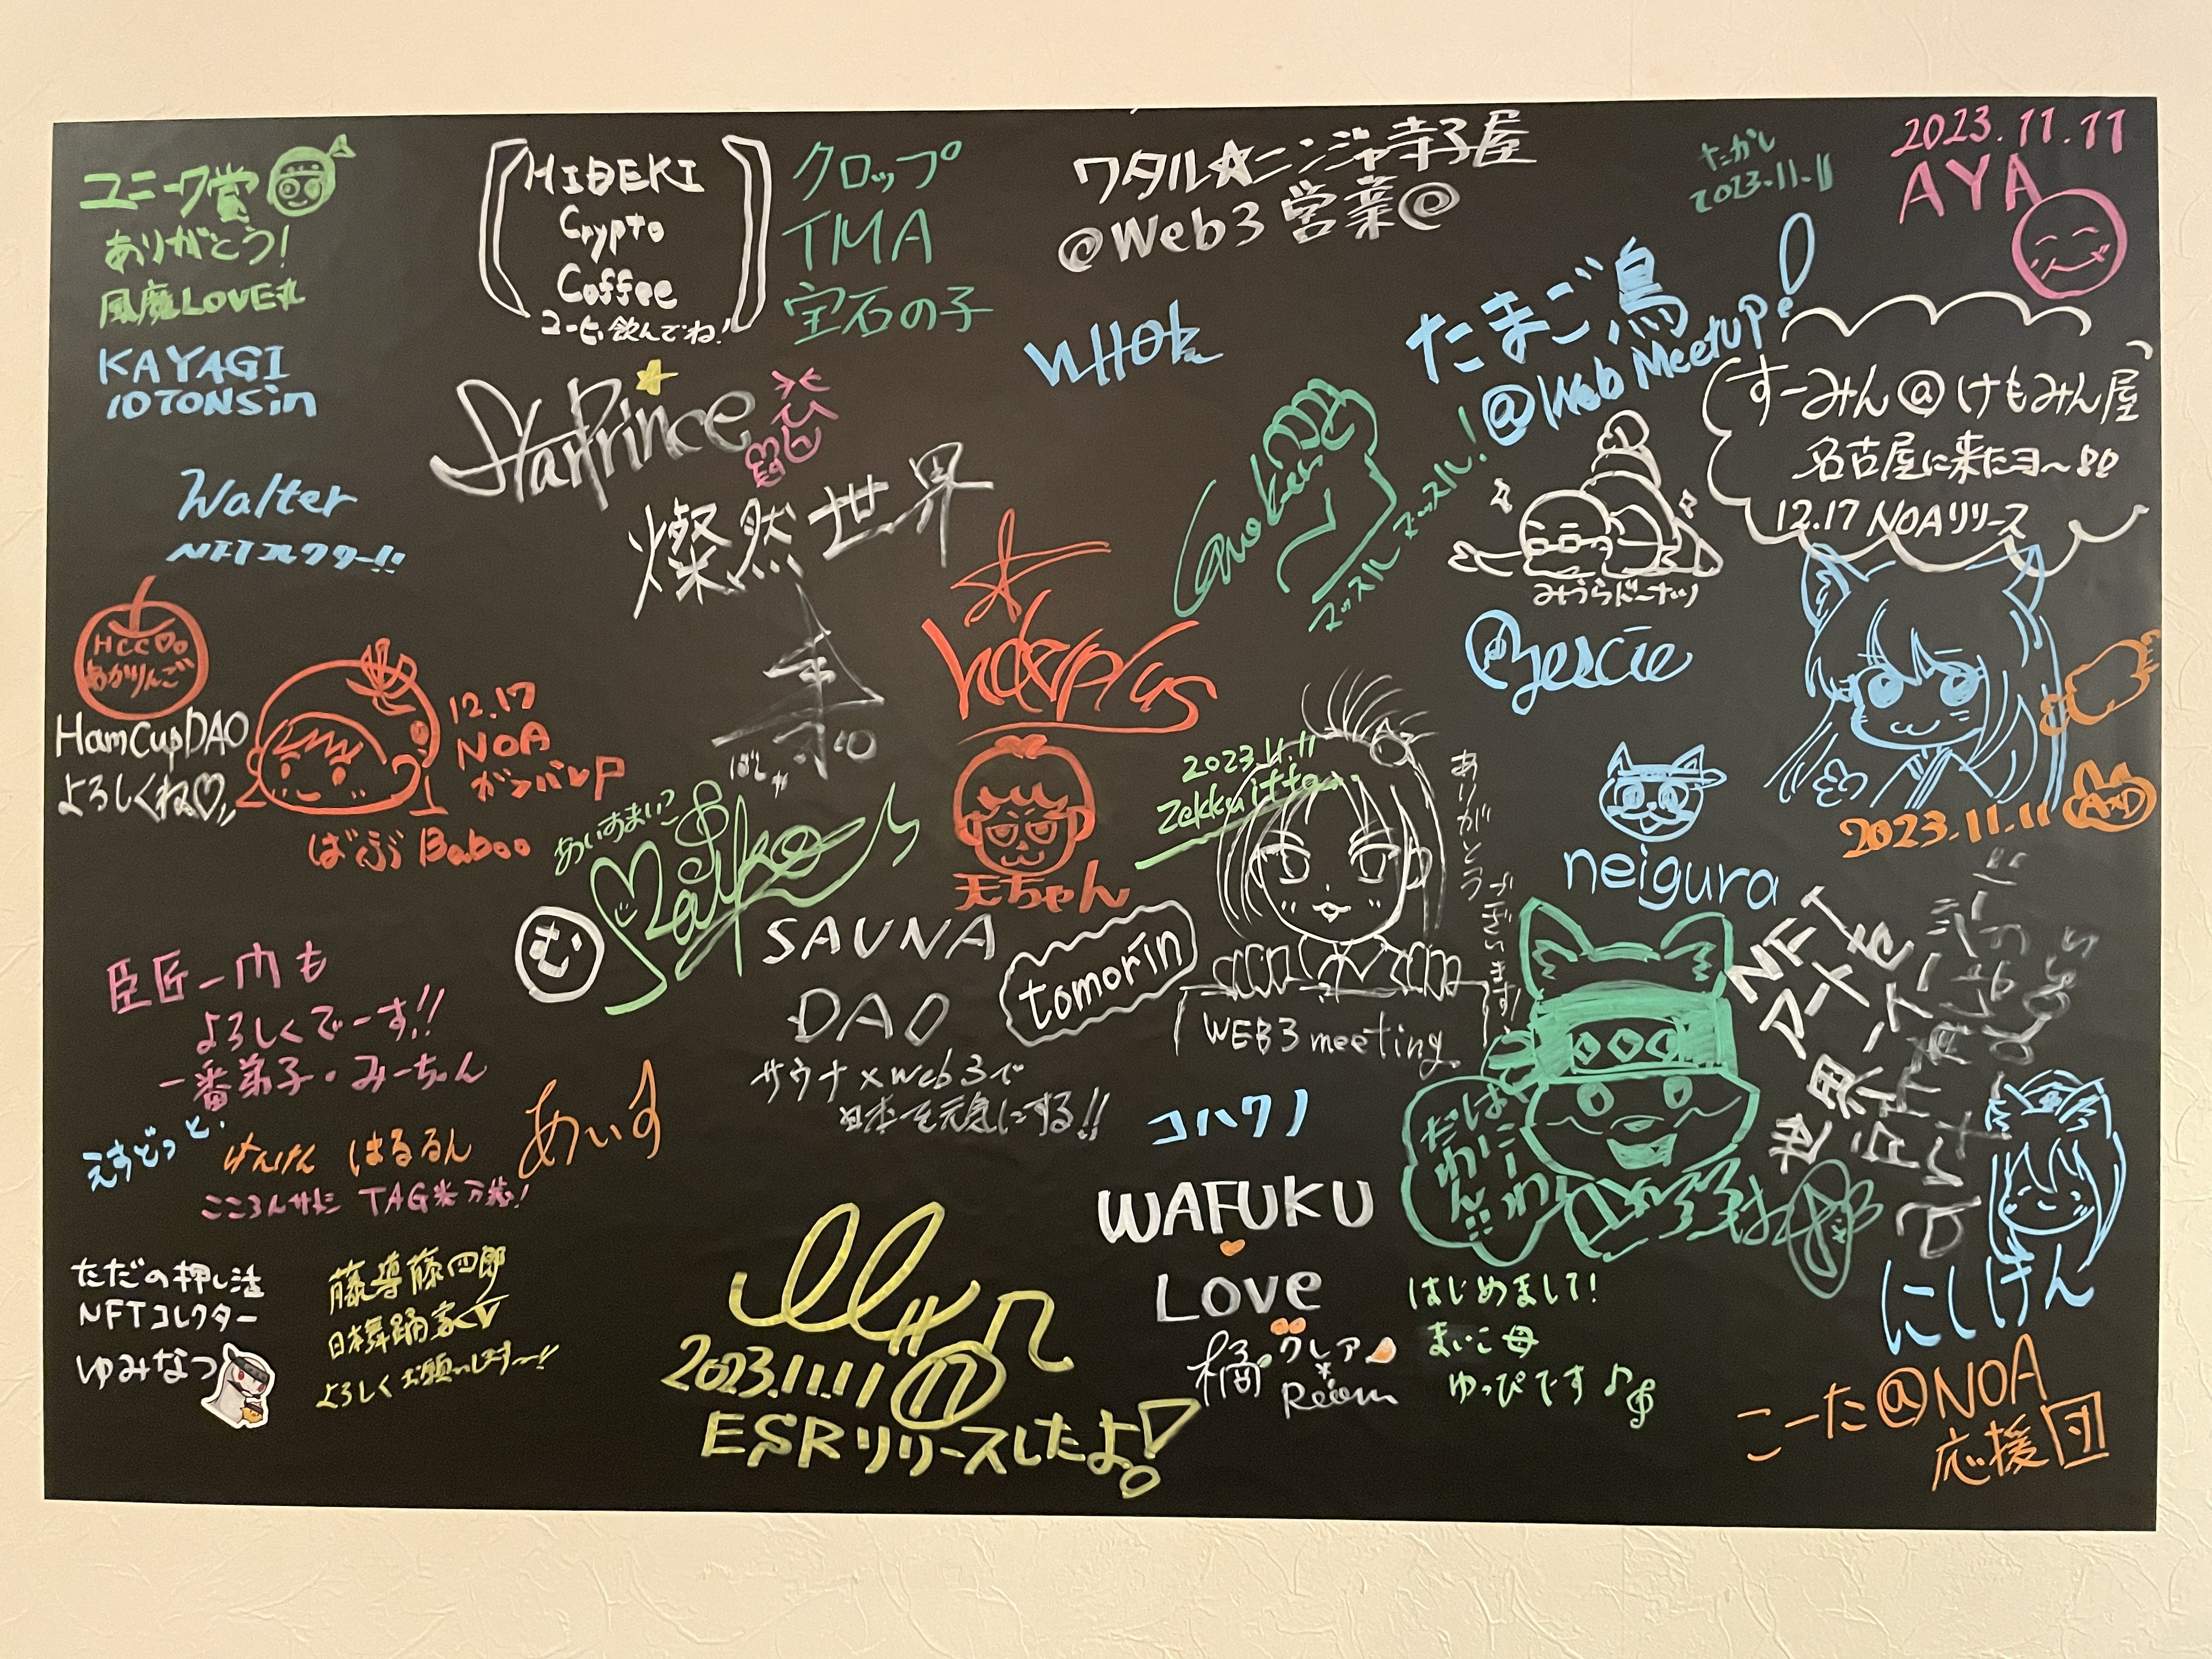 ユニーク賞
ありがとう!
風魔LOVE丸
HIDEKI
Crypto
Coffee
コーヒー飲んでね!
クロップ
TMA
宝石の子
ワタル☆ニンジャ寺子屋
@Web3営業@
たかし
2023.11.11
2023.11.11
AYA
KAYAGI
10TONSin
StarPrince
たまご鳥
@Web Meetup!
すーみん@けもみん屋
名古屋に来たヨ〜!!
12.17 NOAリリース
Walter
NFTコレクター!!
燦然世界
マッスル マッスル!
みうらドーナツ
HCC
あかりんご
HamCupDAO
よろしくね♡
12.17
NOA
ガンバレP
ばぶ Baboo
あいすまいこ
Maiko
天ちゃん
2023.11.11
Zekkuitto
ありがとう
ございます!
neigura
2023.11.11
む
SAUNA
DAO
サウナ×web3で
日本を元気にする!!
tomorin
WEB3 meeting
NFT
アートを
世界へ
臣匠一門も
よろしくでーす!!
一番弟子・みーちゃん
えすどっと.
けんけん はるるん
あいす
コハクノ
WAFUKU
Love
橘
クレア
×
Reiom
はにーわ
だわん!!
にしけん
ただの押し活
NFTコレクター
ゆみなつ
藤導藤四郎
日本舞踊家
よろしくお願いします〜!!
2023.11.11
ESRリリースしたよ!
はじめまして!
まいこ母
ゆっぴです♪
こーた@NOA
応援団